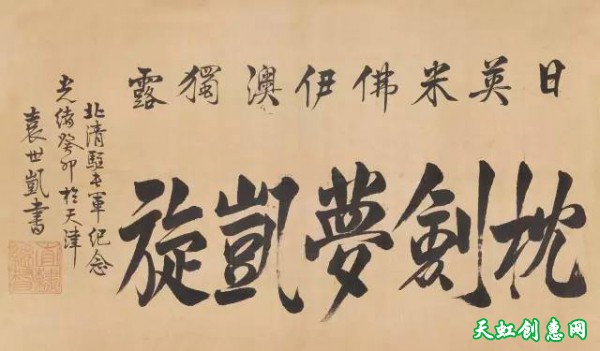 日英米佛伊澳獨露
枕劍夢凱旋
北清駐屯軍紀念
光緒癸卯於天津
袁世凱書
天虹创惠网